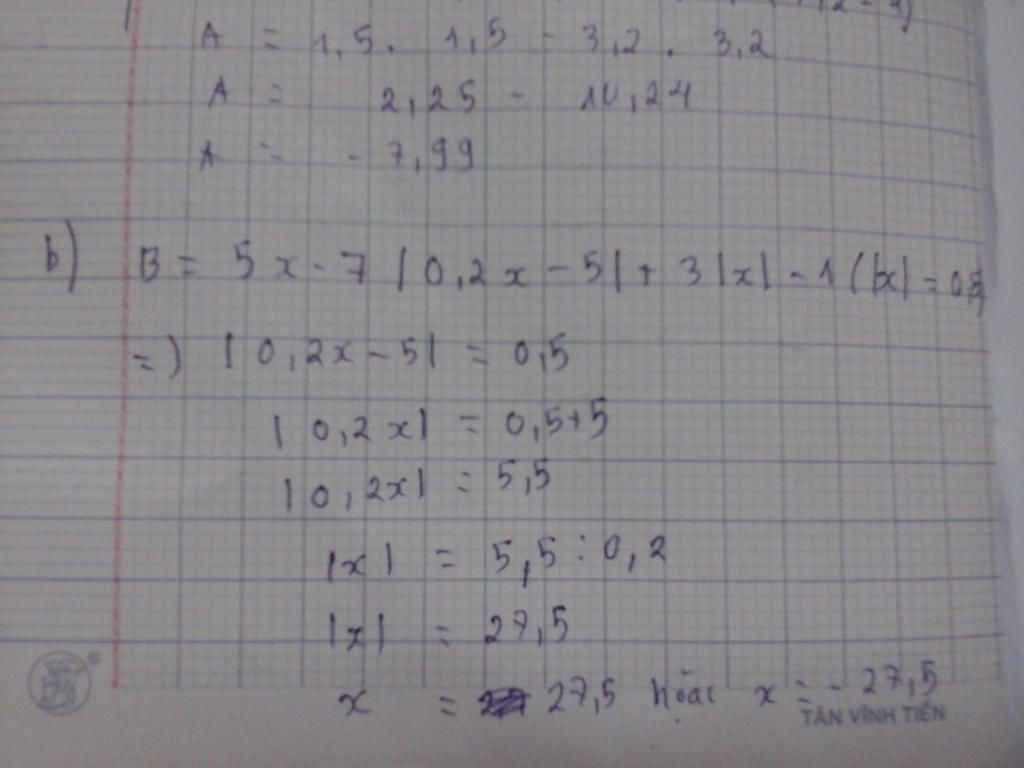 A = 1,5 . 1,5 - 3,2 . 3,2
A = 2,25 - 10,24
A = - 7,99
b) B = 5x - 7 |0,2x - 5| + 3|x| - 1 (|x| = 0,5)
=) |0,2x - 5| = 0,5
|0,2x| = 0,5+5
|0,2x| = 5,5
|x| = 5,5 : 0,2
|x| = 27,5
x = 27,5 hoặc x = - 27,5
TÂN VĨNH TIẾN